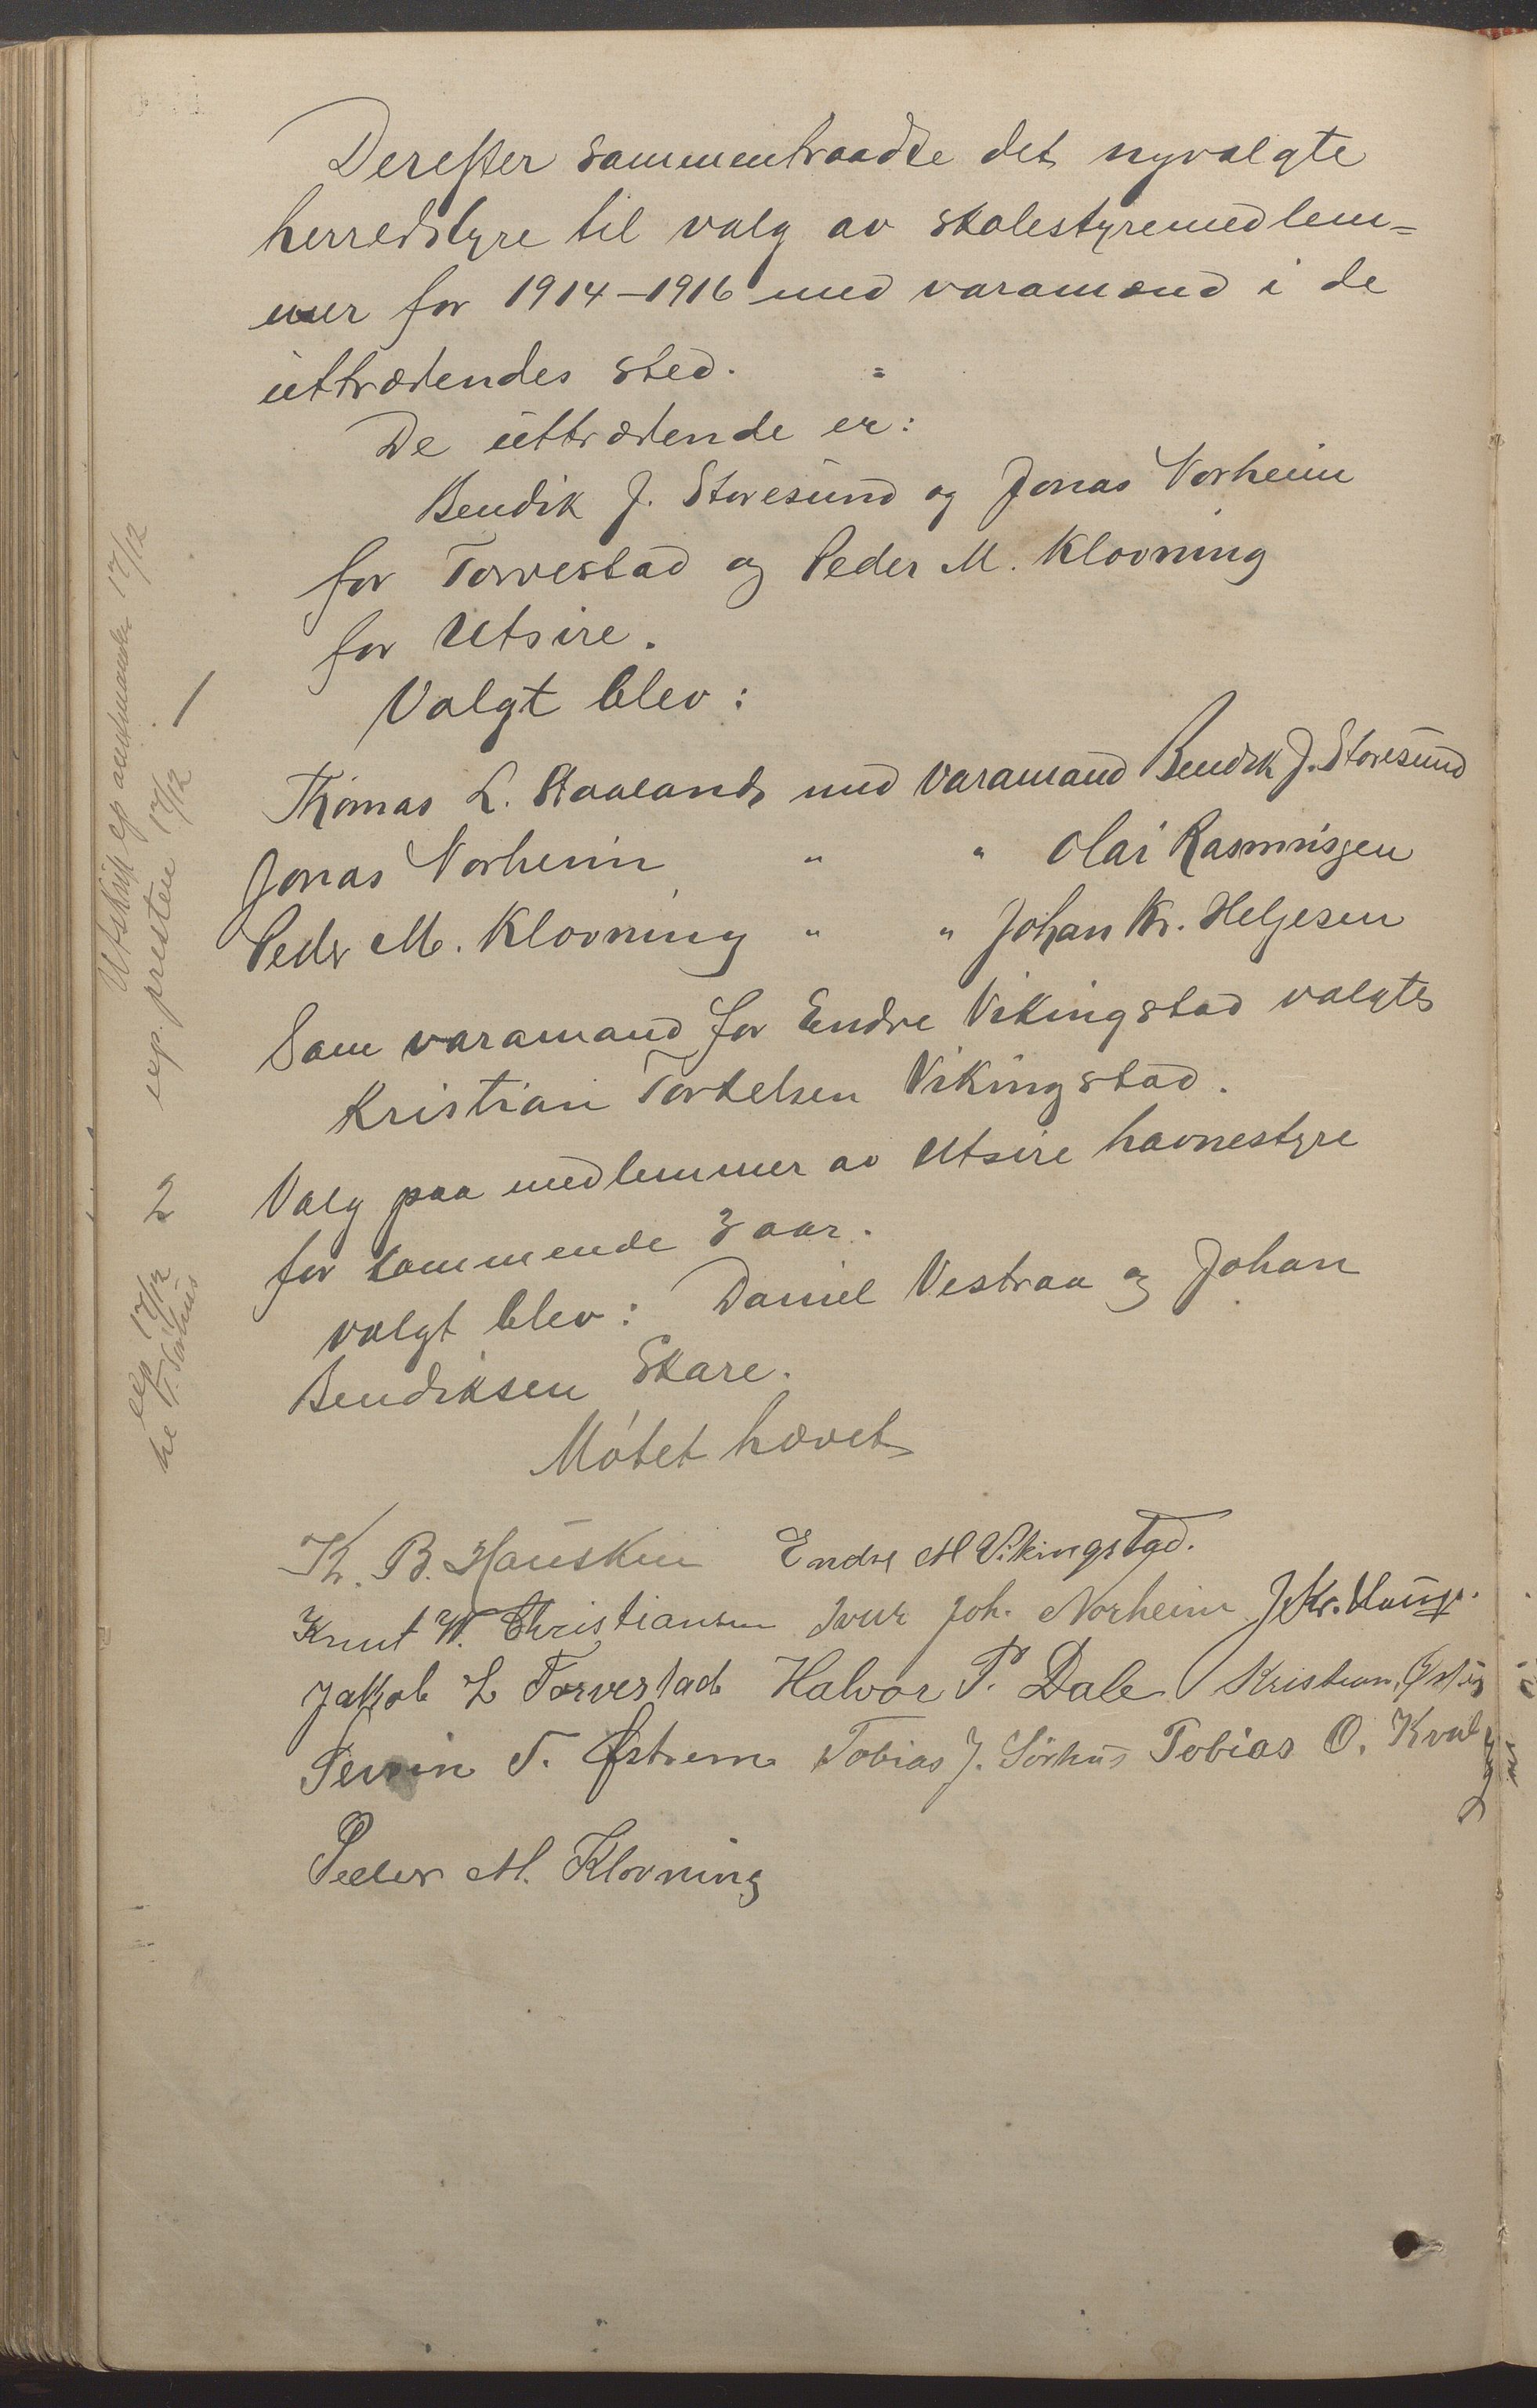 Derefter sammentraadte det nyvalgte
herredstyre til valg av skolestyremedlem=
mer for 1914-1916 med varamænd i de
uttrædendes sted.
De uttrædende er:
Bendik J. Storesund og Jonas Norheim
for Torvestad og Peder M. Klovning
for Utsire.
1
Valgt blev:
Thomas L. Staaland med varamand Bendik J. Storesund
Jonas Norheim " " Olai Rasmussen
Peder M. Klovning " " Johan Kr. Helgesen
Som varamand for Endre Vikingstad valgtes
Kristian Torkelsen Vikingstad.
2
Valg paa medlemmer av Utsire havnestyre
for kommende 3 aar.
valgt blev: Daniel Vestraa og Johan
Bendiksen Skare.
Møtet hævet
Kr. B. Hausken Endre M Vikingstad.
Knut W. Christiansen Iver Joh. Norheim J. Kr. Hauge.
Jakob L Torvestad Halvor P. Dale Kristian
T. Østrem Tobias J. Sörhus Tobias O.
Peder M. Klovning
Utskrift 17/12
presten 17/12
17/12